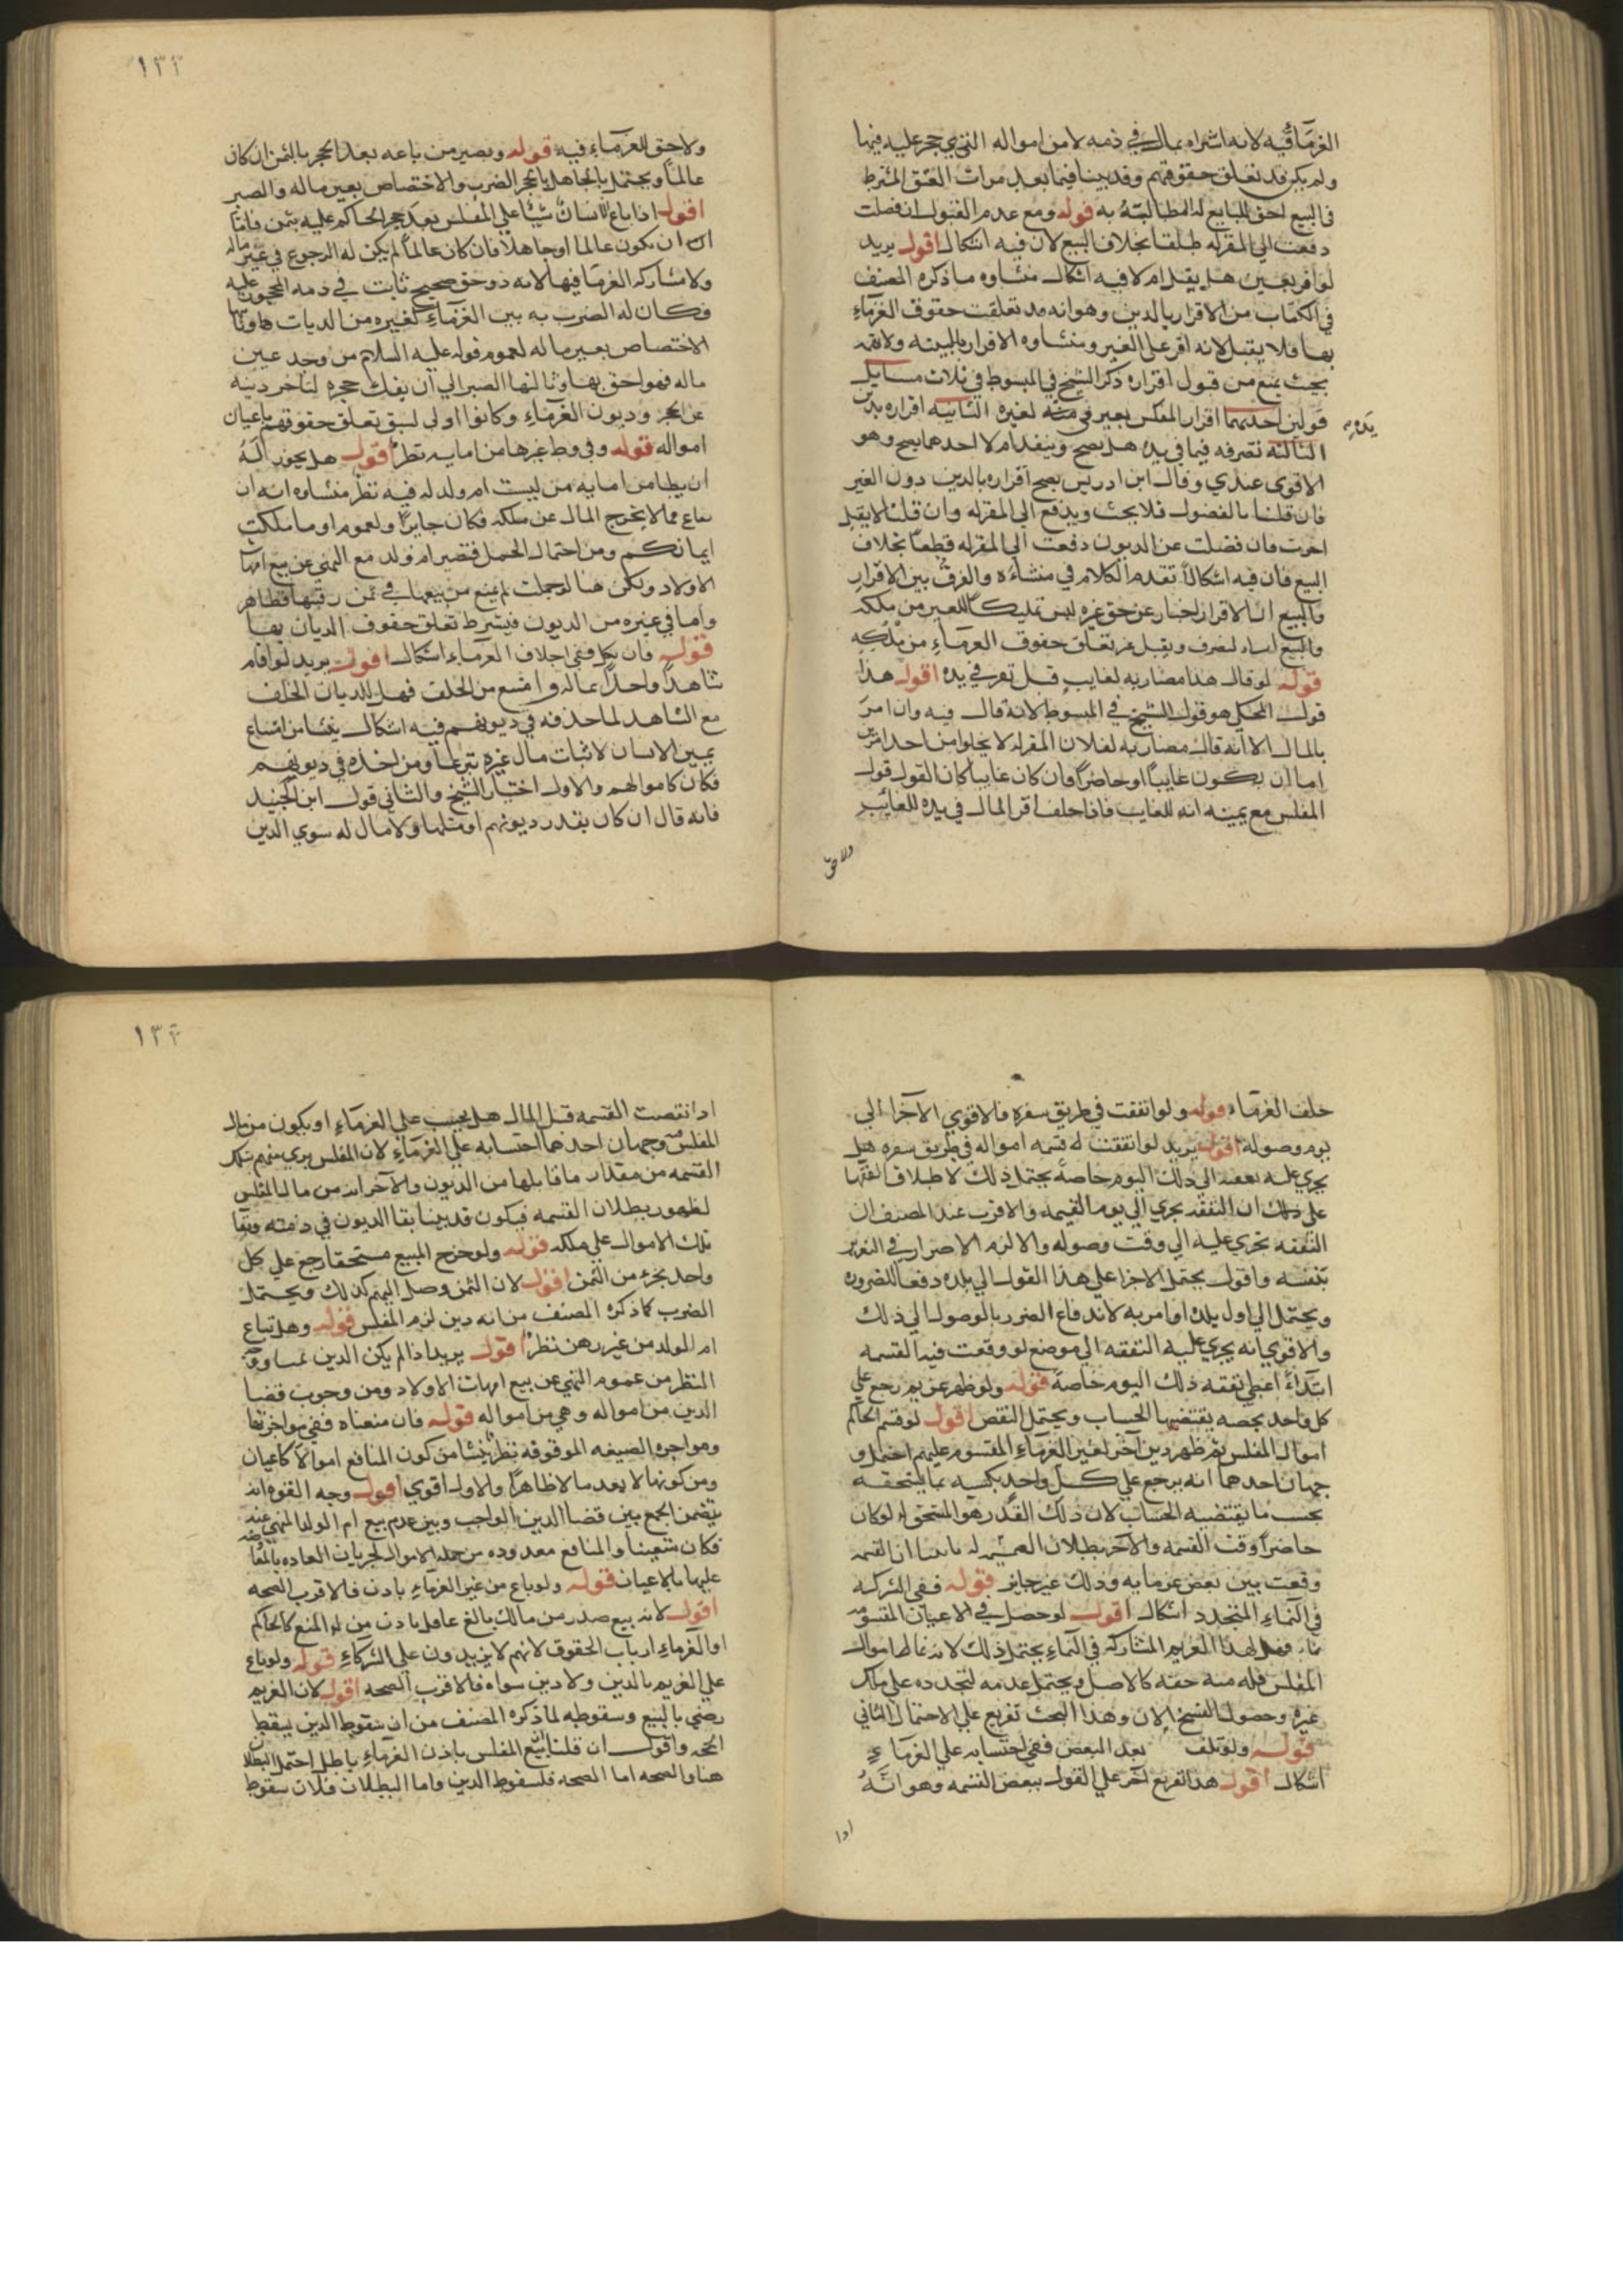 الغرماء فيه لانه اشتراه بمال في ذمه لا من امواله التي حجر عليه فيها
ولم يكن قد تعلق حقوقهم وقد بينا فيما بعد مرات العتق المشترط
في البيع احق للبايع له المطالبة به قوله ومع عدم القبول ان فضلت
دفعت الي المقر له طلقا بخلاف البيع لان فيه اشكال اقول يريد
لو اقر بعين هل يقبل ام لا فيه اشكال منشاوه ما ذكره المصنف
في الكتاب من الاقرار بالدين وهو انه قد تعلقت حقوق الغرماء
بها فلا يقبل لانه اقر على الغير ومنشاوه الاقرار كالبينه ولا تهمه
بحيث يمنع من قبول اقراره ذكر الشيخ في المبسوط في ثلاث مسايل
قولين احديهما اقرار المفلس بعين في لغيره الثانيه اقراره بدين
يده
الثالثة تصرفه فيما في يده هل يصح وينفذ ام لا احدهما يصح وهو
الاقوى عندي وقال ابن ادريس يصح اقراره بالدين دون العين
فان قلنا بالقبول فلا بحث ويدفع الي المقر له وان قلنا لا يقبل
اخرت فان فضلت عن الديون دفعت الي المقر له قطعا بخلاف
البيع فان فيه اشكالا تقدم الكلام في منشائه والفرق بين الاقرار
والبيع ان الاقرار اخبار عن حق غيره ليس تمليكا للعين من ملكه
والبيع تصرف ويقبل عن تعلق حقوق الغرماء من ملكه
قوله لو قال هذا مضاربه لغايب قيل تقر في يده اقول هذا
قول المحكي هو قول الشيخ في المبسوط لانه قال فيه وان اقر
بالمال الا انه قال مضاربه لفلان المقر له لا يخلوا من احد امرين
اما ان يكون غايبا او حاضرا فان كان غايبا كان القول قول
المفلس مع يمينه انه للغايب فاذا حلف اقر المال في يده للغايب
ولا حق
١٣٣
ولا حق للغرماء فيه قوله ويصير من باعه بعد الحجر بالثمن ان كان
عالما ويحتمل بالجاهل بالحجر الضرب والاختصاص بعين ماله والصبر
اقول اذا باع انسان شيئا علي المفلس بعد حجر الحاكم عليه بثمن فاما
ان يكون عالما او جاهلا فان كان عالما لم يكن له الرجوع في عين ماله
ولا مشاركه الغرما فيها لانه ذو حق صحيح ثابت في ذمه المحجور عليه
فكان له الضرب به بين الغرماء كغيره من الديات وثانيها
الاختصاص بعين ماله لعموم قوله عليه السلام من وجد عين
ماله فهو احق بها وثالثها الصبر الي ان يفك حجره لتاخر دينه
عن الحجر وديون الغرماء وكانوا اولى لسبق تعلق حقوقهم باعيان
امواله قوله وفي وطي غيرها من امايه نظر اقول هل يجوز له
ان يطا من امايه من ليست ام ولد له فيه نظر منشاوه انه ان
مما لا يخرج المال عن ملكه فكان جايزا ولعموم او ما ملكت
ايمانكم ومن احتمال الحمل فتصير ام ولد مع النهي عن بيع امهات
الاولاد ولكن هنا لو حملت لم يمنع من بيعها في ثمن رقبتها فظاهر
واما في غيره من الديون فيشرط تعلق حقوق الديان بها
قوله فان نكل ففي احلاف الغرماء اشكال اقول يريد لو اقام
شاهدا واحدا بماله وامتنع من الحلف فهل للديان الحلف
مع الشاهد لما حذفه في ديونهم فيه اشكال ينشا من امتناع
يمين الانسان لاثبات مال غيره تبرعا ومن اخذه في ديونهم
فكان كاموالهم والاول اختيار الشيخ والثاني قول ابن الجنيد
فانه قال ان كان بقدر ديونهم او مثلها ولا مال له سوي الدين
حلف الغرماء قوله ولو اتفقت في طريق سفره فالاقوي الاجرا الي
يوم وصوله اقول يريد لو اتفقت له قسمه امواله في طريق سفره هل
يجري عليه نفقته الي ذلك اليوم خاصة يحتمل ذلك لاطلاق الفقها
على ان النفقه يجري الي يوم القسمه والاقرب عند المصنف ان
النفقه تجري عليه الي وقت وصوله والا لزم الاضرار في التغرير
بنفسه واقول يحتمل الاجرا علي هذا القول الي بلده دفعا للضروره
ويحتمل الي اول بلد او امر به لاندفاع الضرر بالوصول الي ذلك
والاقوي انه يجري عليه النفقه الي موضع لو وقعت فيه القسمه
ابتداء اعطي نفقه ذلك اليوم خاصة قوله ولو ظهر غريم رجع علي
كل واحد بحصه يقتضيها الحساب ويحتمل النقص اقول لو قسم الحاكم
اموال المفلس ثم ظهر دين اخر لغير الغرماء المقسوم عليهم احتمل و
جهان احدهما انه يرجع علي كل واحد بما يستحقه
بحسب ما يقتضيه الحساب لان ذلك القدر هو المستحق له لو كان
حاضرا وقت القسمه والاخر بطلان القسمه
وقعت بين بعض غرمايه وذلك غير جايز قوله ففي الشركه
في النماء المتجدد اشكال اقول لو حصل في الاعيان المقسومه
نماء فهل لهذا الغريم المشاركه في النماء يحتمل ذلك لانه نما لها اموال
المفلس فله منه حقه كالاصل ويحتمل عدمه لتجدده علي ملك
غيره وحصول الفسخ الان وهذا البحث تفريع علي الاحتمال الثاني
قوله ولو تلف بعد البعض ففي احتسابه علي الغرماء
اشكال اقول هذا تفريع اخر علي القول ببعض القسمه وهو انه
اذا
١٣٤
اذا نقصت القسمه قبل المال هل يحسب علي الغرماء او يكون من مال
المفلس وجهان احدهما احتسابه علي الغرماء لان المفلس بري منهم بتلك
القسمه من مقدار ما قابلها من الديون والاخر انه من مال المفلس
لظهور بطلان القسمه فيكون قد بينا بقا الديون في ذمته وبقا
تلك الاموال علي ملكه قوله ولو خرج المبيع مستحقا رجع علي كل
واحد بجزء من الثمن اقول لان الثمن وصل اليهم كذلك ويحتمل
الضرب كما ذكره المصنف من انه دين لزم المفلس قوله وهل تباع
ام الولد من غير رهن نظر اقول يريد اذا لم يكن الدين ثمنها وجه
النظر من عموم النهي عن بيع امهات الاولاد ومن وجوب قضا
الدين من امواله وهي من امواله قوله فان منعناه ففي مواجرتها
ومواجره الضيعه الموقوفه نظر ينشا من كون المنافع اموالا كاعيان
ومن كونها لا يعد مالا ظاهرا والاول اقوي اقول وجه القوه انه
يتضمن الجمع بين قضا الدين الواجب وبين عدم بيع ام الولد المنهي عنه
فكان متعينا والمنافع معدوده من جمله الاموال لجريان العاده بالمعاوضه
عليها بالاعيان قوله ولو باع من غير الغرماء باذن فالاقرب الصحه
اقول لانه بيع صدر من مالك بالغ عاقل باذن من له المنع كالحاكم
او الغرماء ارباب الحقوق لانهم لا يزيدون علي الشركاء قوله ولو باع
علي الغريم بالدين ولا دين سواه فالاقرب الصحه اقول لان الغريم
رضي بالبيع وسقوطه لما ذكره المصنف من ان سقوط الدين يسقط
الحجر واقول ان قلنا بيع المفلس باذن الغرماء باطل احتمل البطلان
هنا والصحه اما الصحه فلسقوط الدين واما البطلان فلان سقوط